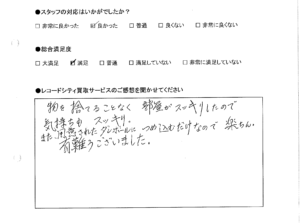 ●スタッフの対応はいかがでしたか？
□ 非常に良かった ☑ 良かった □ 普通 □ 良くない □ 非常に良くない
●総合満足度
□ 大満足 ☑ 満足 □ 普通 □ 満足していない □ 非常に満足していない
●レコードシティ買取サービスのご感想を聞かせてください
物を捨てることなく 部屋がスッキリしたので
気持ちも スッキリ。
また 用意されたダンボールに つめ込むだけなので 楽ちん。
有難うございました。